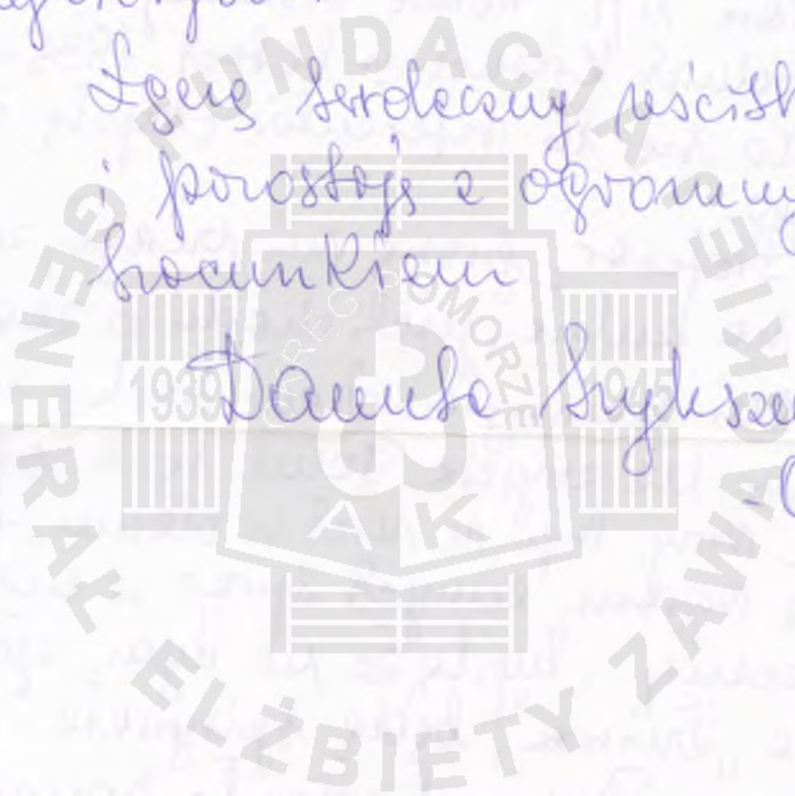 Łączę serdeczny uścisk
i pozostaję z ogromnym
szacunkiem
Danuta Szyksze
FUNDACJA GENERAŁ ELŻBIETY ZAWACKIEJ
OKRĘG POMORZE
1939
1945
AK